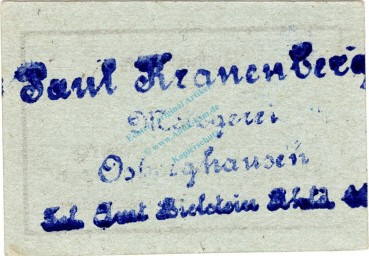 Paul Kranenberg
Metzgerei
Osberghausen
Tel. Amt Bielstein Rhld.